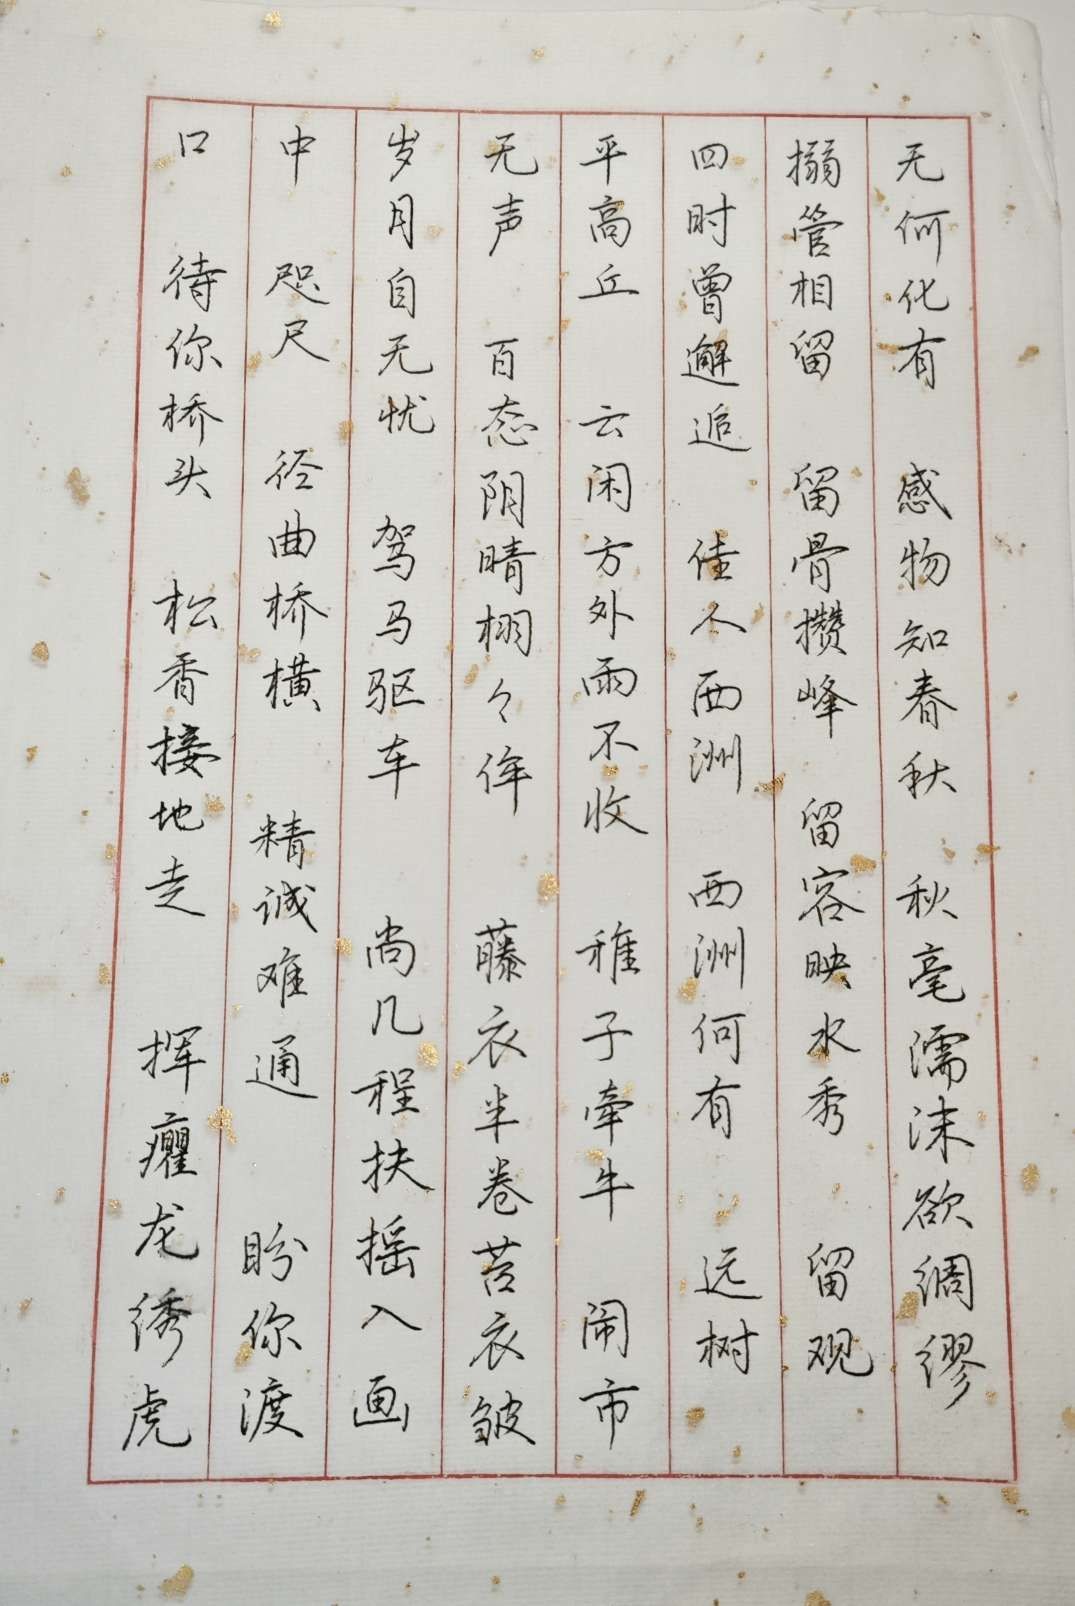 无何化有 感物知春秋 秋毫濡沫欲绸缪
搦管相留 留骨攒峰 留容映水秀 留观
四时曾邂逅 佳人西洲 西洲何有 远树
平高丘 云闲方外雨不收 稚子牵牛 闹市
无声 百态阴晴栩々侔 藤衣半卷苔衣皱
岁月自无忧 驾马驱车 尚几程扶摇入画
中 咫尺 径曲桥横 精诚难通 盼你渡
口 待你桥头 松香接地走 挥癯龙绣虎